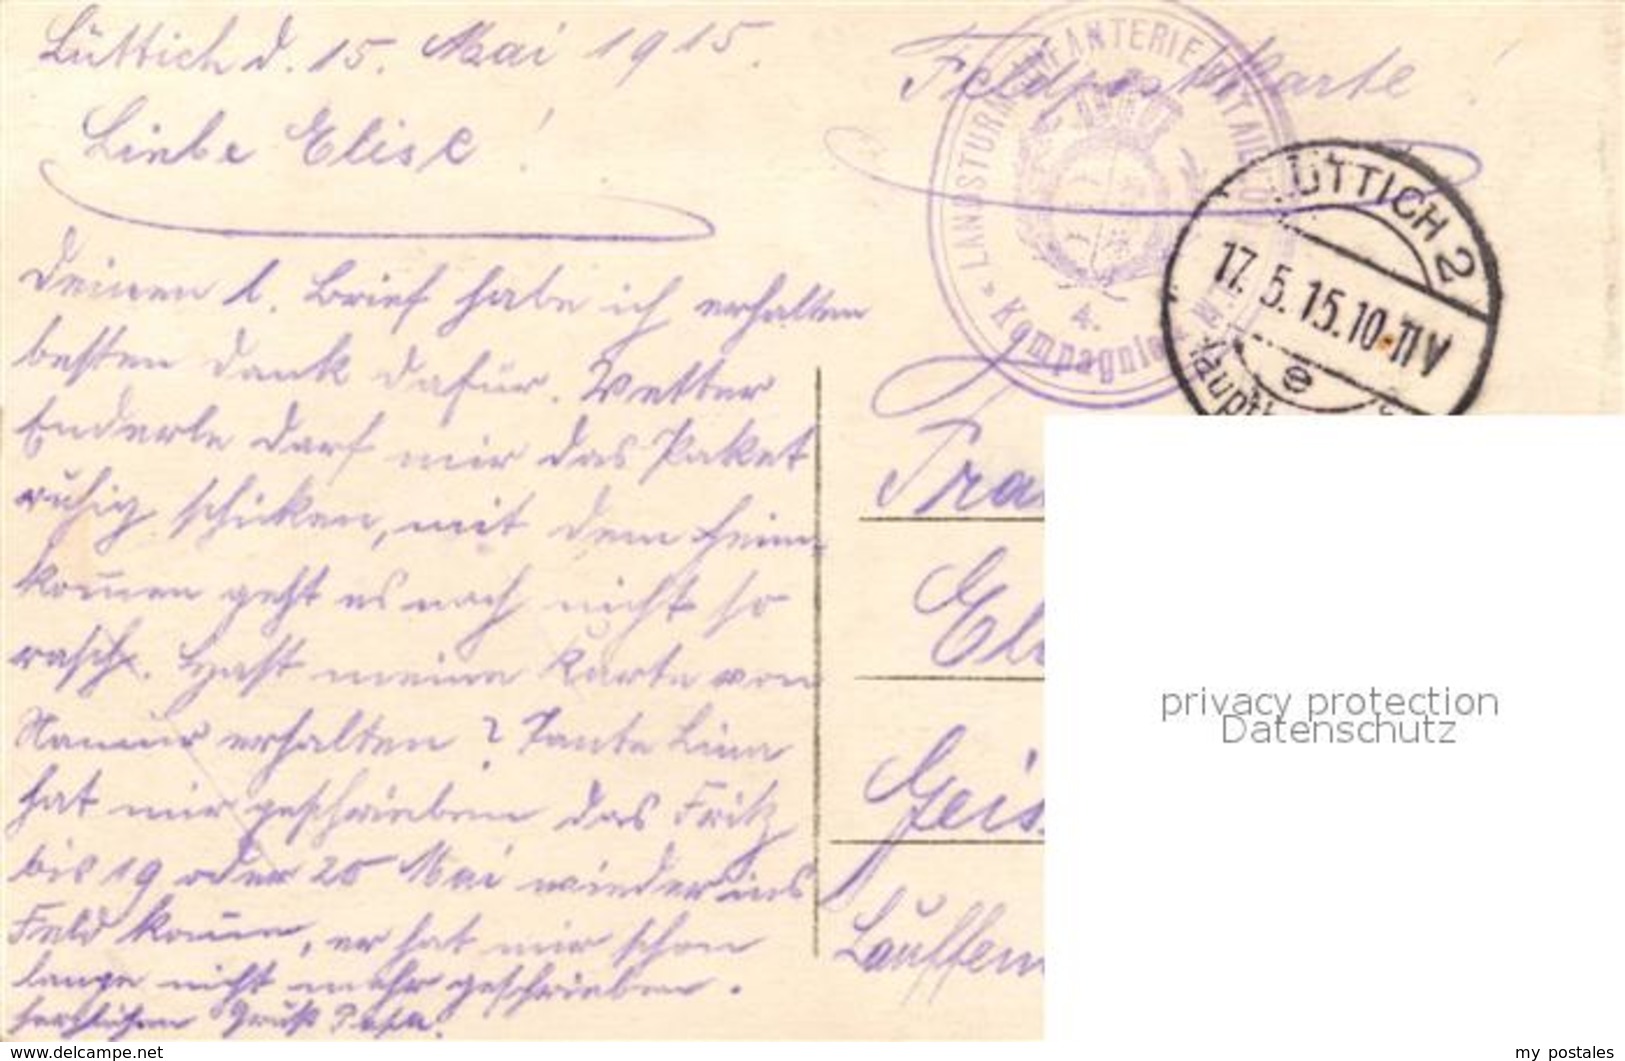 Lüttich d. 15. Mai 1915.
Liebe Elise!
Deinen l. Brief habe ich erhalten
besten Dank dafür. Vetter
Enderle darf mir das Paket
ruhig schicken, mit dem heim-
kom̅en geht es noch nicht so
rasch. Hast meine Karte von
Namur erhalten? Tante Lina
hat mir geschrieben das Fritz
bis 19 oder 20 Mai wieder ins
Feld kom̅e, er hat mir schon
lange nicht mehr geschrieben.
herzlichen Gruß Papa.
Feldpostkarte!
LANDSTURM INFANTERIE BATAILLON
4.
* Kompagnie *
LÜTTICH 2
17.5.15.10-11V
e
Frau
Eli
Geis
Lauffen
privacy protection
Datenschutz
www.delcampe.net
my postales